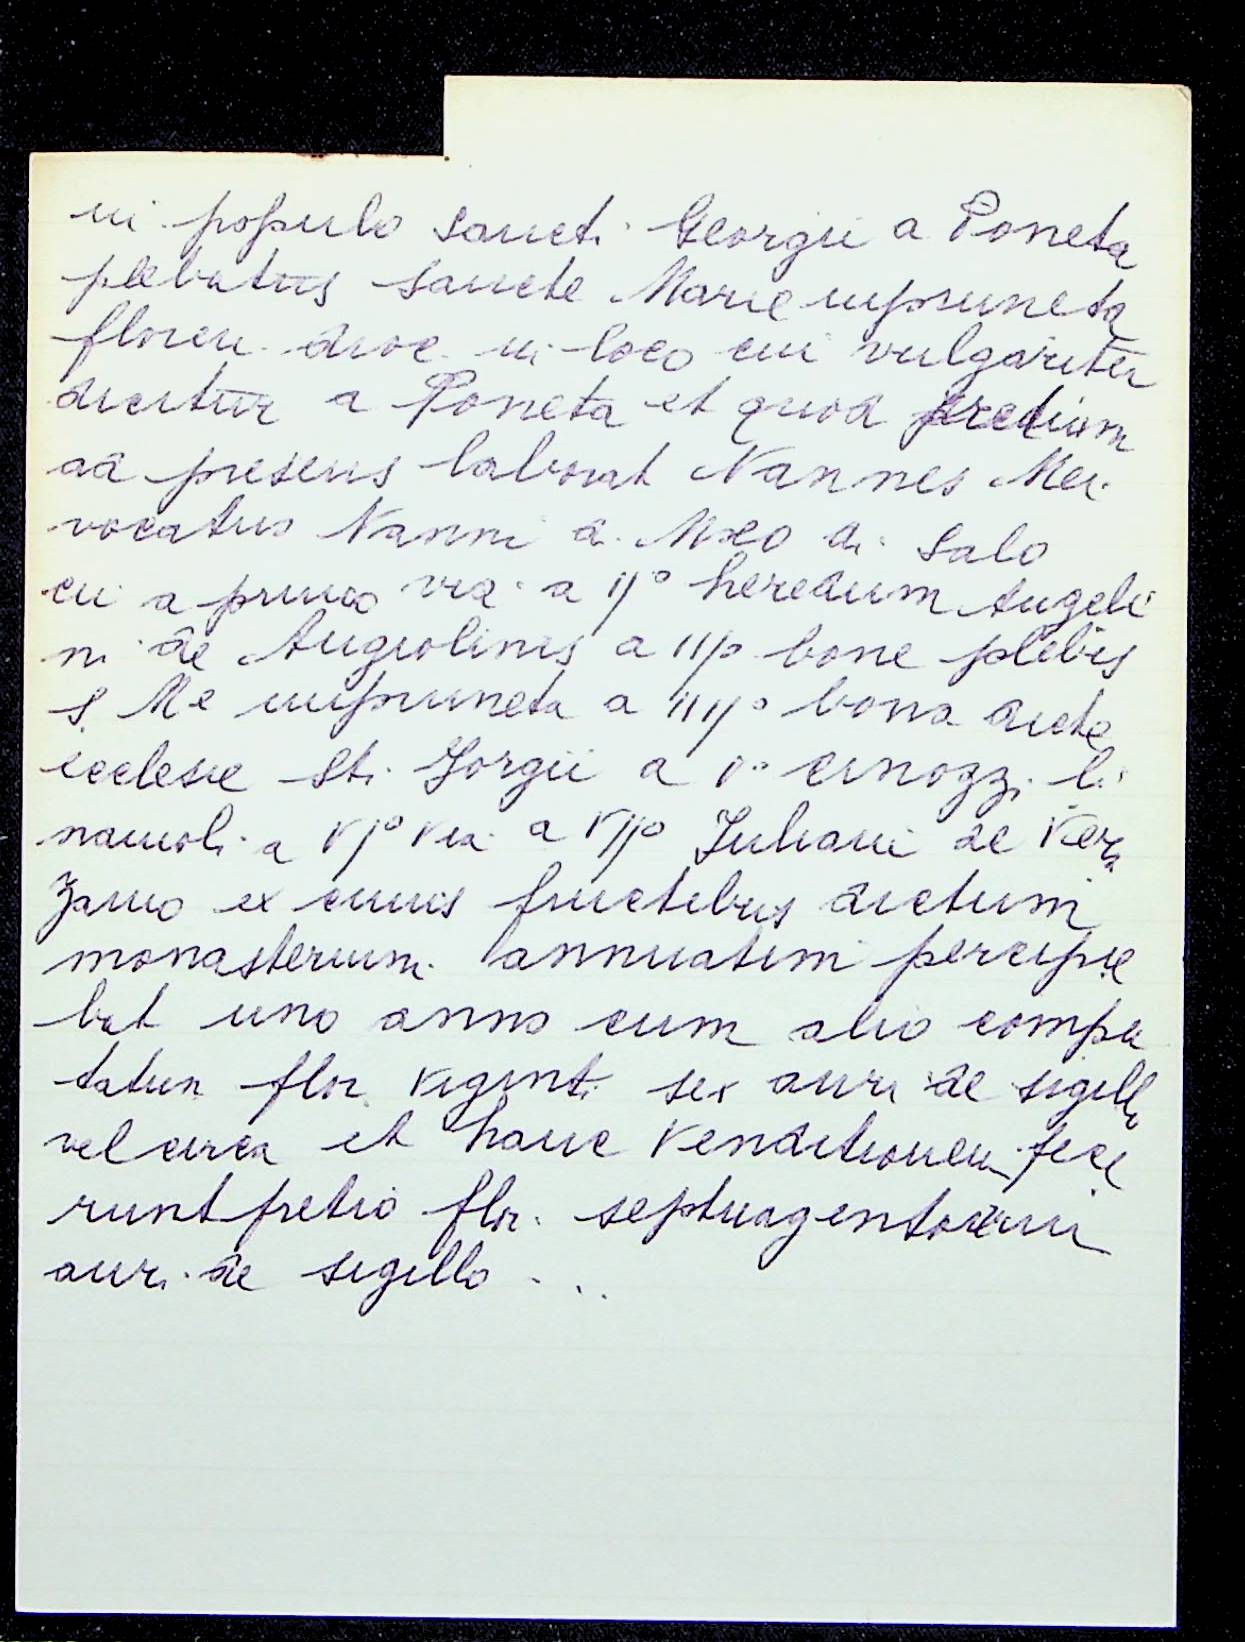 in populo Sancti Georgii a Poneta
plebatus Sancte Marie impruneta
floren. dioc. in loco cui vulgariter
dicitur a Poneta et quod predium
ad presens laborat Nannes Mei
vocatus Nanni d. Meo di Salo
cui a primo via a IJ° heredum Angeli
ni de Angiolinis a IIJ° bone plebis
S Me impruneta a IIIJ° bona dicte
ecclesie Sti Jorgii a V°
a VJ° via a VIJ° Juliani de Verra
zano ex cuius fructibus dictum
monasterium annuatim percipie
bat uno anno cum alio compu
tatum flor. viginti sex auri de sigillo
vel circa et hanc venditionem fece
runt pretio flor. septuagentorum
auri de sigillo . . .